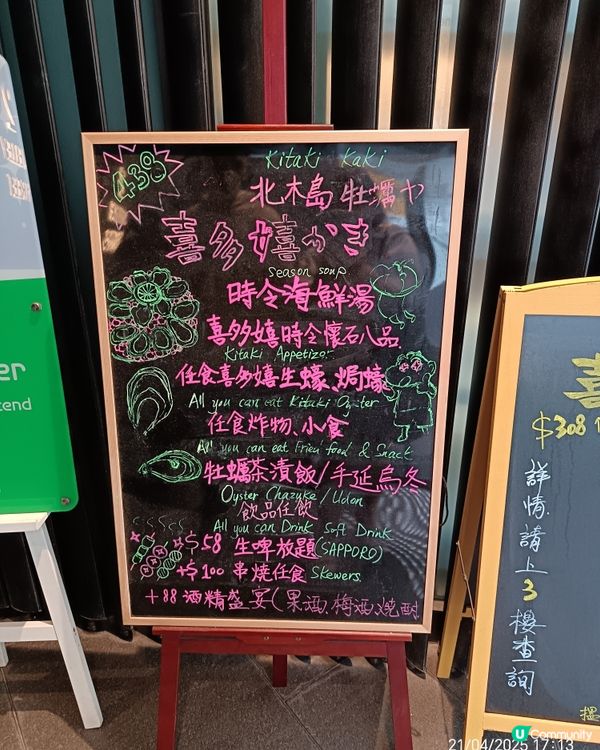 438
Kitaki Kaki
北木島 牡蠣や
喜多嬉かき
Season soup
時令海鮮湯
喜多嬉時令懷石八品
Kitaki Appetizer
任食喜多嬉生蠔、焗蠔
All you can eat Kitaki Oyster
任食炸物、小食
All you can eat Fried food & Snack
牡蠣茶漬飯/手延烏冬
Oyster Chazuke / Udon
飲品任飲
All you can Drink Soft Drink
+$58 生啤放題(SAPPORO)
+$100 串燒任食 Skewers
+88 酒精盛宴(果酒,梅酒,燒酎
er
tend
喜
$308
詳情請上3樓查詢
U Community
21/04/2025 17:13